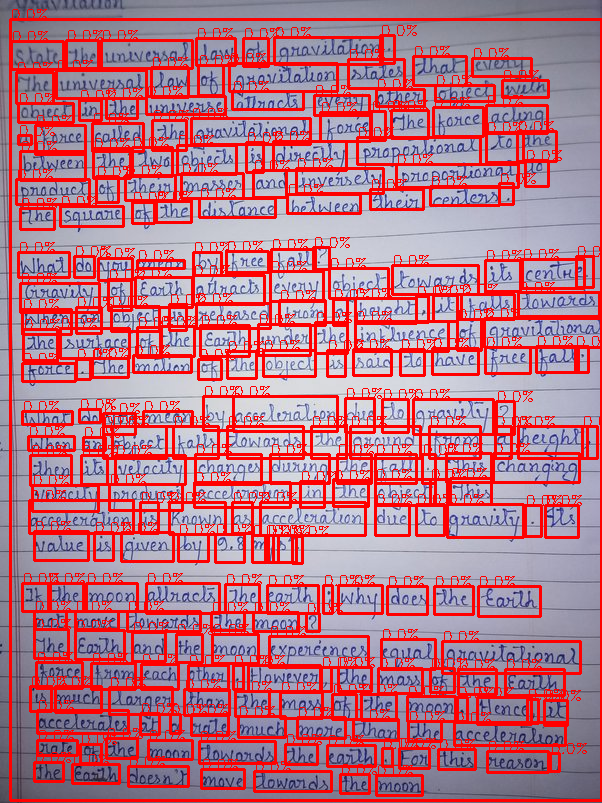 Gravitation
State the universal law of gravitation.
The universal law of gravitation states that every
object in the universe attracts every other object with
a force called the gravitational force. The force acting
between the two objects is directly proportional to the
product of their masses and inversely proportional to
the square of the distance between their centers.
What do you mean by free fall?
Gravity of Earth attracts every object towards its centre.
When an object is released from a height, it falls towards
the surface of the Earth under the influence of gravitational
force. The motion of the object is said to have free fall.
What do you mean by acceleration due to gravity?
When an object falls towards the ground from a height,
then its velocity changes during the fall. This changing
velocity produces acceleration in the object. This
acceleration is known as acceleration due to gravity. Its
value is given by 9.8 m/s².
If the moon attracts the earth, why does the Earth
not move towards the moon?
The Earth and the moon experiences equal gravitational
force from each other. However, the mass of the Earth
is much larger than the mass of the moon. Hence, it
accelerates at a rate much more than the acceleration
rate of the moon towards the earth. For this reason,
the Earth doesn't move towards the moon